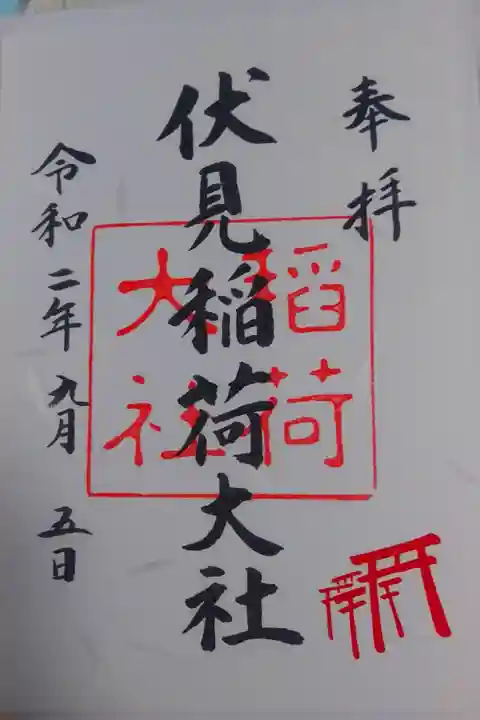 奉拝
伏見稲荷大社
稲荷
大社
令和二年九月五日